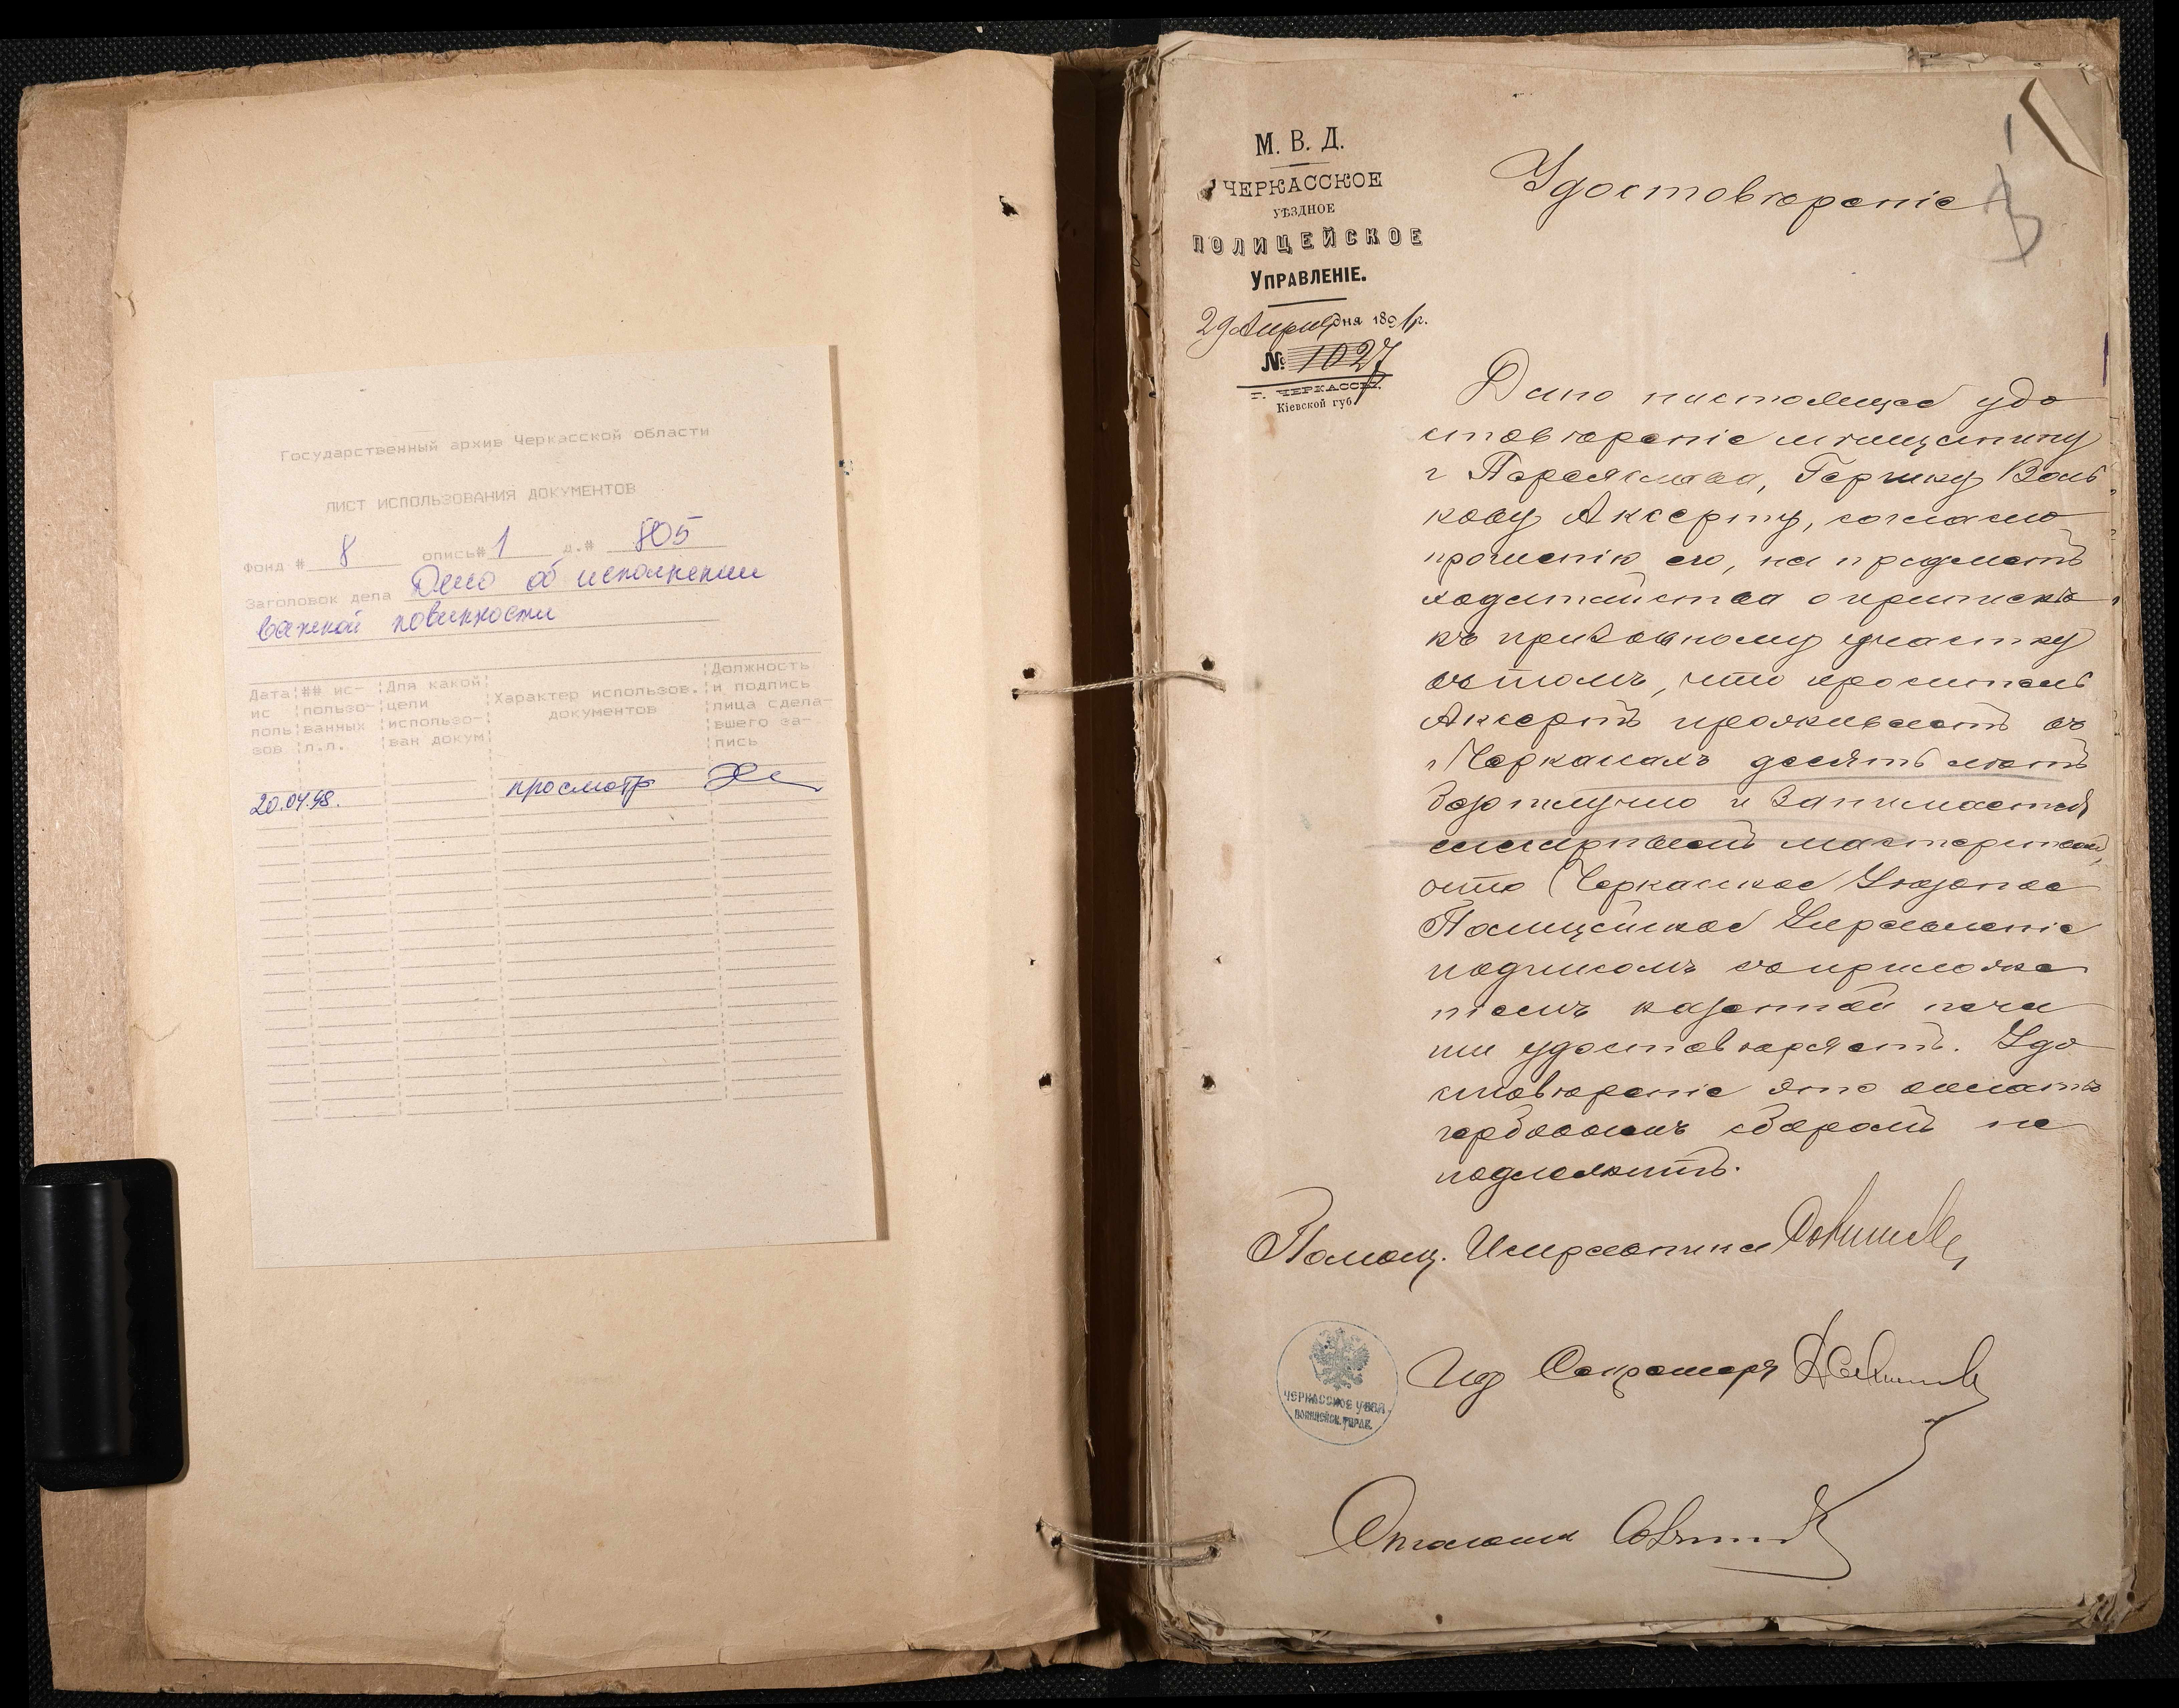 Государственный архив Черкасской области
ЛИСТ ИСПОЛЬЗОВАНИЯ ДОКУМЕНТОВ
Фонд # 8 опись# 1 д.# 805
Заголовок дела Дело об исполнении
воинской повинности
Дата ис поль зов
## ис- пользо- ванных л.л.
Для какой цели использо- ван докум
Характер использов. документов
Должность и подпись лица сдела- вшего за- пись
20.04.98. просмотр
М. В. Д.
ЧЕРКАССКОЕ
УѢЗДНОЕ
ПОЛИЦЕЙСКОЕ
УПРАВЛЕНІЕ.
29 Апрѣля дня 1891 г.
№ 1027
г. ЧЕРКАССЫ.
Кіевской губ.
1
Удостовѣреніе
Дано настоящее удо
стовѣреніе мѣщанину
г Переяслава, Гершку Воль
кову Аксерту, согласно
прошенію его, на предметъ
ходатайства о припискѣ
къ призывному участку
въ томъ, что проситель
Аксертъ проживаетъ въ
г Черкасахъ десять лѣтъ
безотлучно и занимается
столярнымъ мастерствомъ,
что Черкасское Уѣздное
Полицейское Управленіе
подписомъ съ приложе
ніемъ казенной печа
ти удостовѣряетъ. Удо
стовѣреніе это оплатѣ
гербовымъ сборомъ не
подлежитъ.
Помощ. Исправника
Ид Секретаря
ЧЕРКАССКОЕ УѢЗД.
ПОЛИЦЕЙСК. УПРАВ.